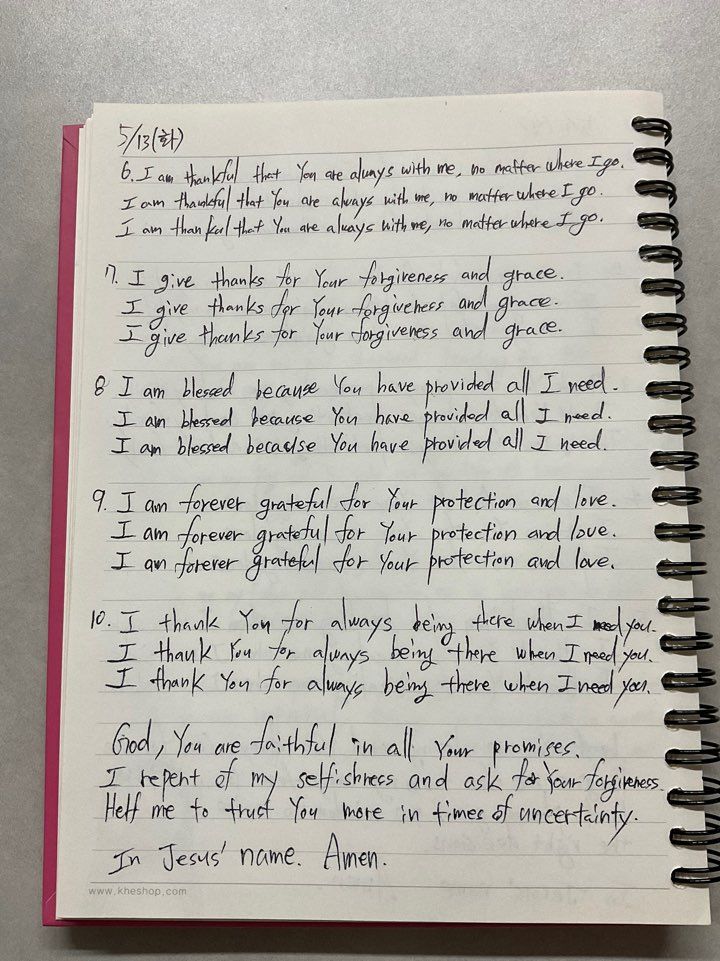 5/13(화)
6. I am thankful that You are always with me, no matter where I go.
I am thankful that You are always with me, no matter where I go.
I am thankful that You are always with me, no matter where I go.
7. I give thanks for Your forgiveness and grace.
I give thanks for Your forgiveness and grace.
I give thanks for Your forgiveness and grace.
8 I am blessed because You have provided all I need.
I am blessed because You have provided all I need.
I am blessed because You have provided all I need.
9. I am forever grateful for Your protection and love.
I am forever grateful for Your protection and love.
I am forever grateful for Your protection and love.
10. I thank You for always being there when I need you.
I thank You for always being there when I need you.
I thank You for always being there when I need you.
God, You are faithful in all Your promises.
I repent of my selfishness and ask for Your forgiveness.
Help me to trust You more in times of uncertainty.
In Jesus' name. Amen.
www.kheshop.com